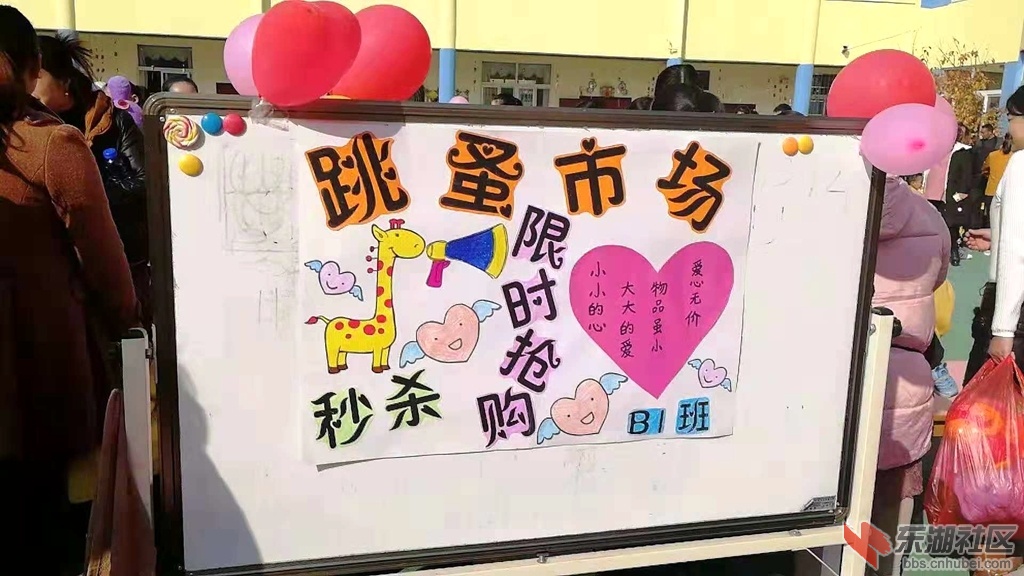 跳蚤市场
限时抢购
秒杀
爱心无价
物品虽小
大大的爱
小小的心
B1班
东湖社区
bbs.cnhubei.com